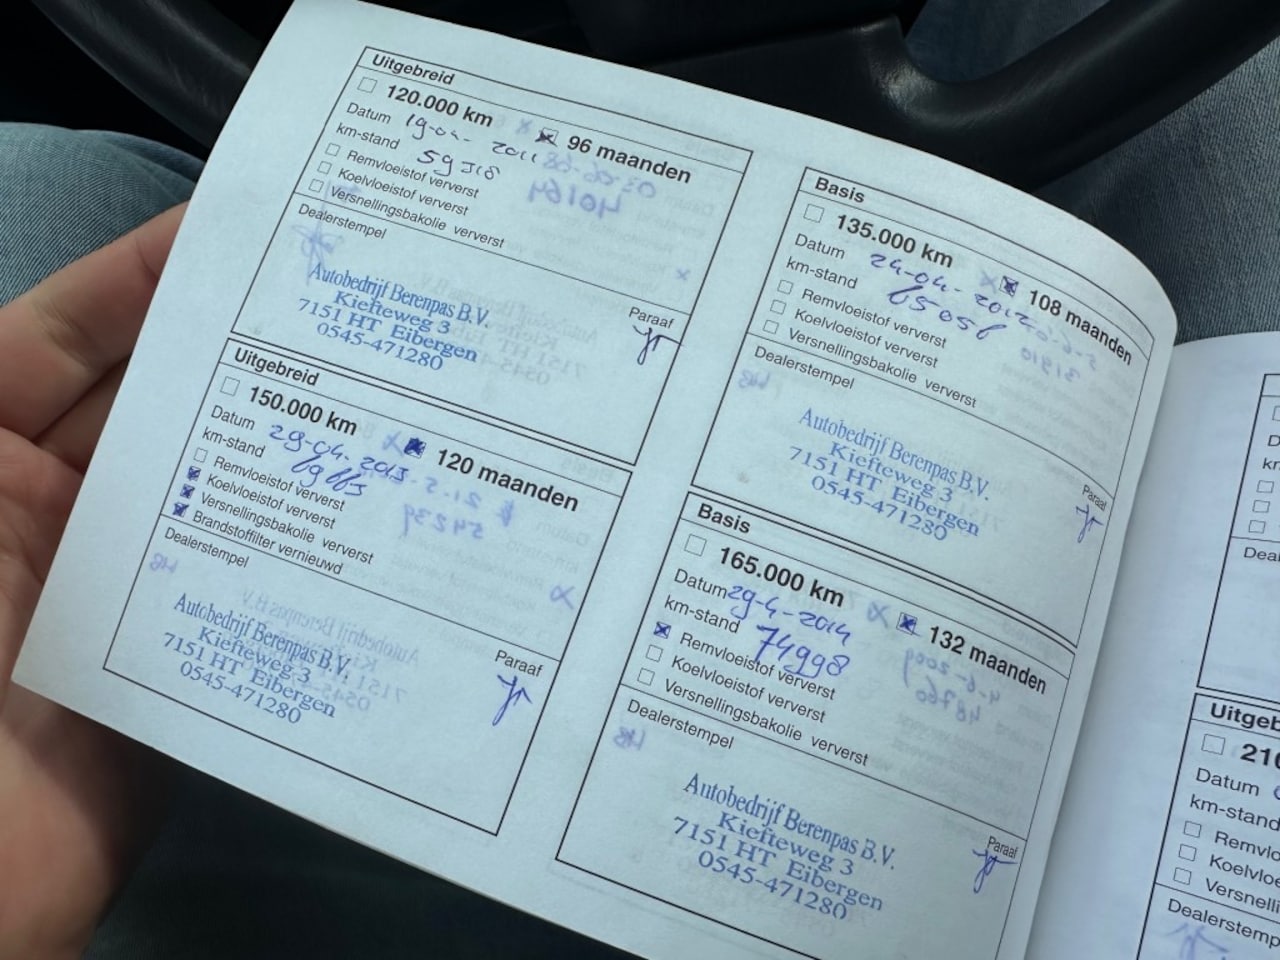 Uitgebreid
120.000 km 96 maanden
Datum 19-04-2011
km-stand 59518
Remvloeistof ververst
Koelvloeistof ververst
Versnellingsbakolie ververst
Dealerstempel
Paraaf
Autobedrijf Berenpas B.V.
Kiefteweg 3
7151 HT Eibergen
0545-471280
Uitgebreid
150.000 km 120 maanden
Datum 29-04-2013
km-stand
Remvloeistof ververst
Koelvloeistof ververst
Versnellingsbakolie ververst
Brandstoffilter vernieuwd
Dealerstempel
Paraaf
Autobedrijf Berenpas B.V.
Kiefteweg 3
7151 HT Eibergen
0545-471280
Basis
135.000 km 108 maanden
Datum 24-04-2012
km-stand 65058
Remvloeistof ververst
Koelvloeistof ververst
Versnellingsbakolie ververst
Dealerstempel
Paraaf
Autobedrijf Berenpas B.V.
Kiefteweg 3
7151 HT Eibergen
0545-471280
Basis
165.000 km 132 maanden
Datum 29-4-2014
km-stand 74998
Remvloeistof ververst
Koelvloeistof ververst
Versnellingsbakolie ververst
Dealerstempel
Paraaf
Autobedrijf Berenpas B.V.
Kiefteweg 3
7151 HT Eibergen
0545-471280
Uitgeb
210
Datum
km-stand
Remvlo
Koelvloe
Versnelli
Dealerstemp